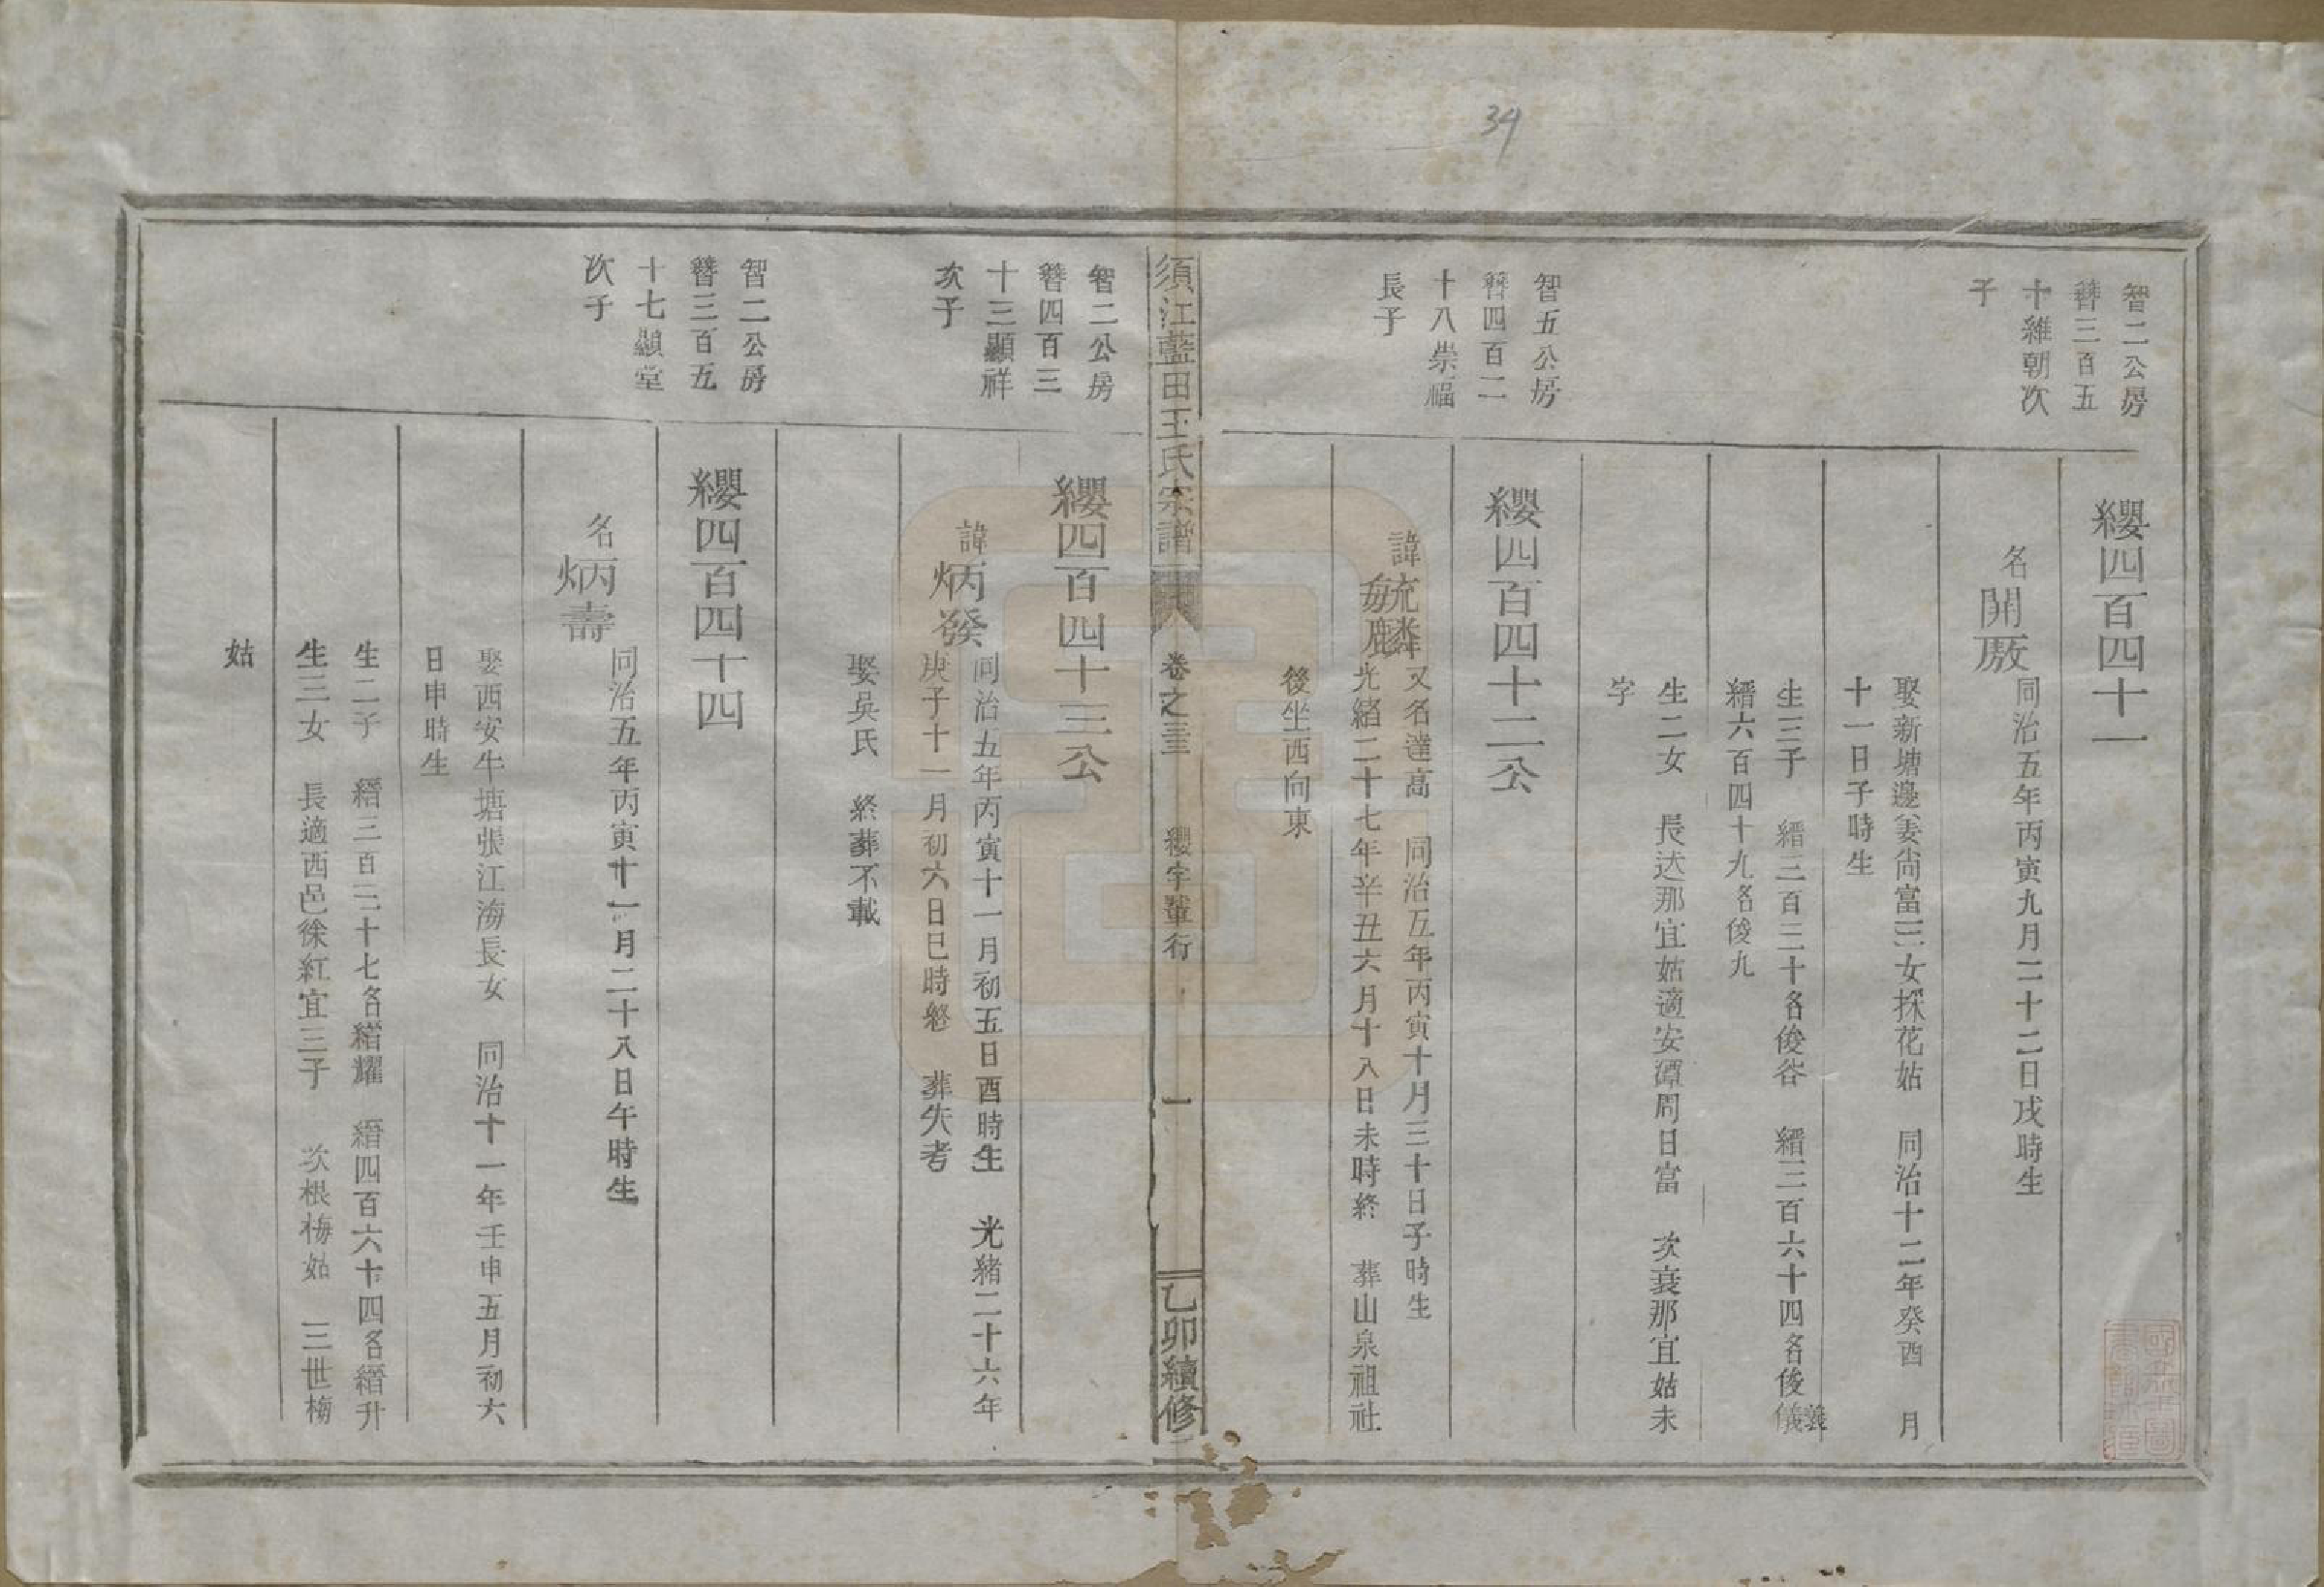 34
智二公房
簪三百五
十維朝次
子
纓四百四十一
名開厫
同治五年丙寅九月二十二日戌時生
娶新塘邊姜尙富三女採花姑 同治十二年癸酉 月
十一日子時生
生三子 縉三百三十名俊峇 縉三百六十四名俊儀義
縉六百四十九名俊九
生二女 長达那宜姑適安潭周日富 次蓑那宜姑未
字
智五公房
簪四百二
十八崇福
長子
纓四百四十二公
諱毓麟
又名達高 同治五年丙寅十月三十日子時生
光緒二十七年辛丑六月十八日未時終 葬山泉祖社
後坐西向東
須江藍田王氏宗譜
卷之三
纓字輩行
一
乙卯續修
智二公房
簪四百三
十三顯祥
次子
纓四百四十三公
諱炳發
同治五年丙寅十一月初五日酉時生 光緒二十六年
庚子十一月初六日巳時終 葬失考
娶吳氏 終葬不載
智二公房
簪三百五
十七顯堂
次子
纓四百四十四
名炳壽
同治五年丙寅十一月二十八日午時生
娶西安牛塘張江海長女 同治十一年壬申五月初六
日申時生
生二子 縉三百三十七名縉耀 縉四百六十四名縉升
生三女 長適西邑徐紅宜三子 次根梅姑 三世梅
姑